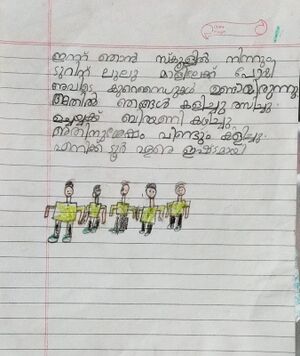 ഇന്ന് ഞാൻ സ്കൂളിൽ നിന്നും
ടൂറിന് ലുലു മാളിലേക്ക് പോയി
അവിടെ കുറെറൈഡുകൾ ഉണ്ടായിരുന്നു
അതിൽ ഞങ്ങൾ കളിച്ചു രസിച്ചു.
ഉച്ചയ്ക്ക് ബിരിയാണി കഴിച്ചു
അതിനുശേഷം വീണ്ടും കളിച്ചു.
എനിക്ക് ടൂർ വളരെ ഇഷ്ടമായി